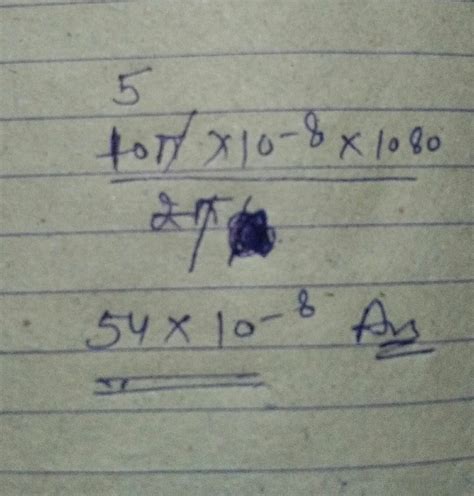 5
10π × 10⁻⁸ × 1080
2π
54 × 10⁻⁸ Ans